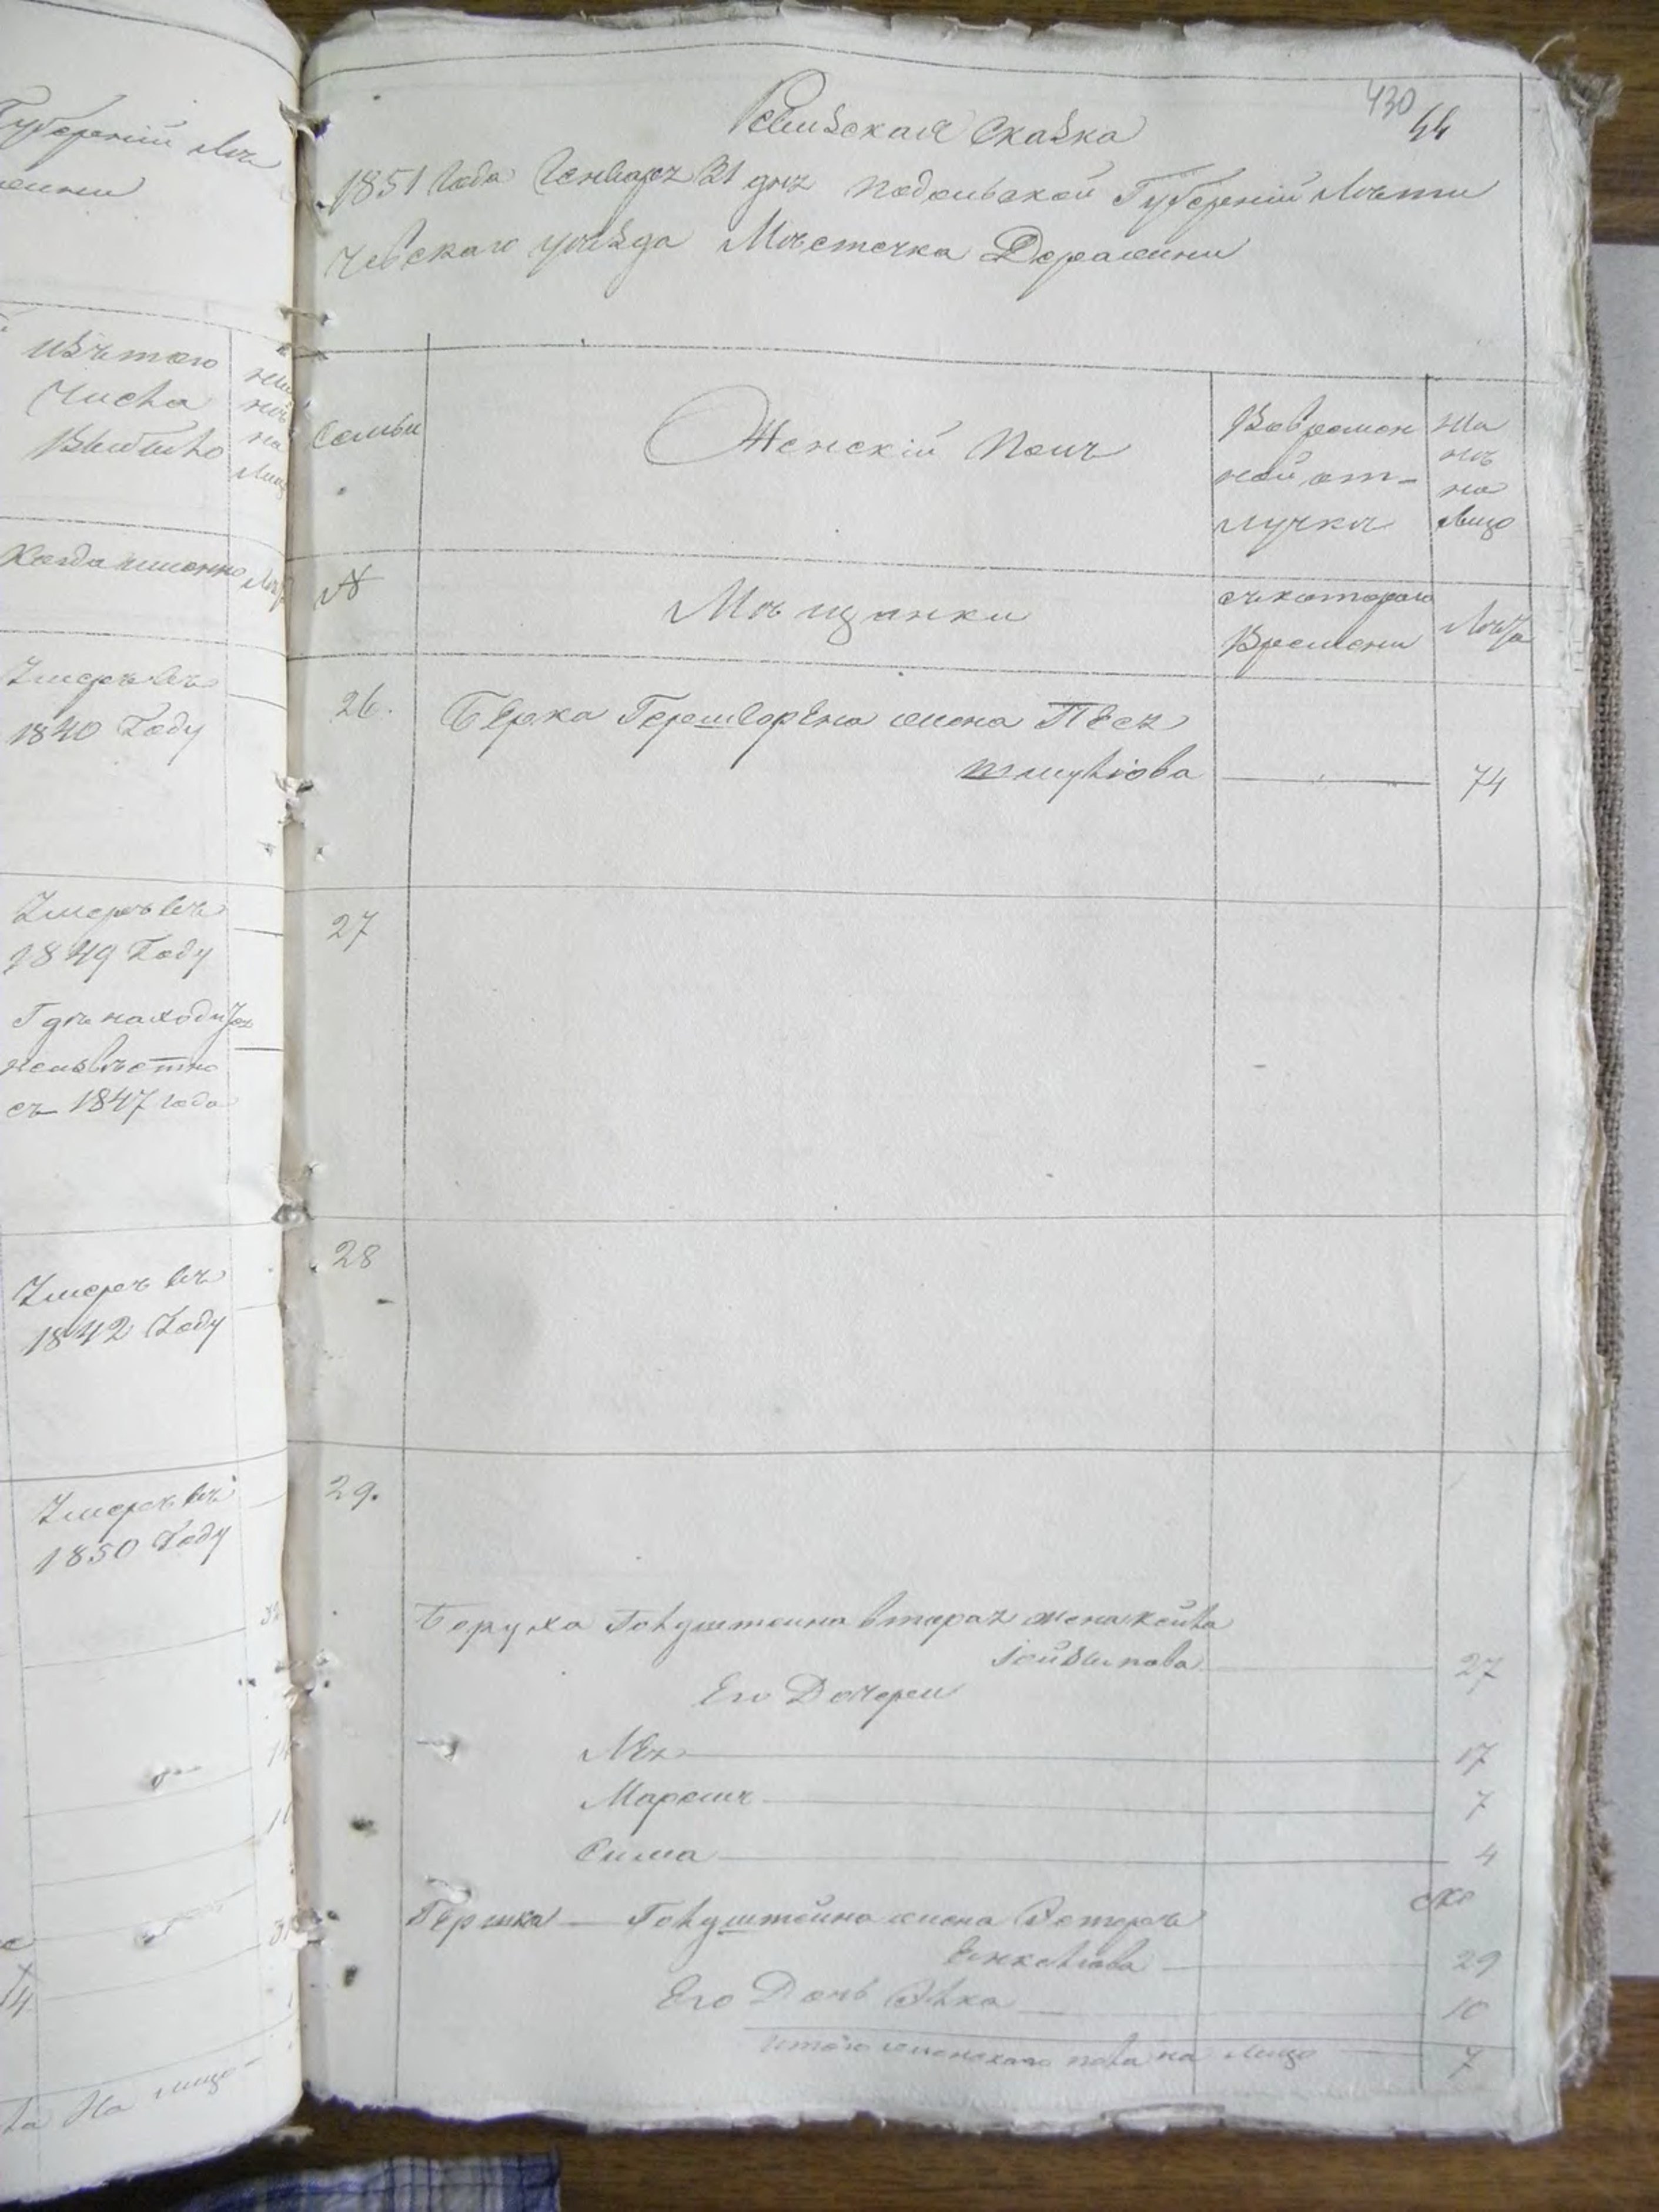 Губерніи Лѣ
430
44
Ревизская Сказка
1851 Года Генваря 31 дня Подольской Губерніи Лѣти
чевскаго уѣзда Мѣстечка Деражни
изъ того
Числа
Выбыло
ны
нѣ
на
Лицо
Семьи
Женскій Полъ
Во времен
ной от-
лучкѣ
Ны
нѣ
на
Лицо
Когда именно
Лѣта
№
Мѣщанки
съ котораго
Времени
Лѣта
Умеръ въ
1840 Году
26.
Берка Гершгорена жена Песя
Шмулiова
74
Умеръ въ
1849 Году
Гдѣ находится
неизвѣстно
съ 1847 года
27
Умеръ въ
1842 Году
28
Умеръ въ
1850 Году
29.
Боруха Гольдштеина вторая жена Хейла
27
Его Дочери
Лея
17
7
Сима
4
Гершка Гольдштейна жена Эстеръ
Янкелiова
29
Его Дочь Элка
10
Итого женскаго пола на лицо
7
ла На лицо